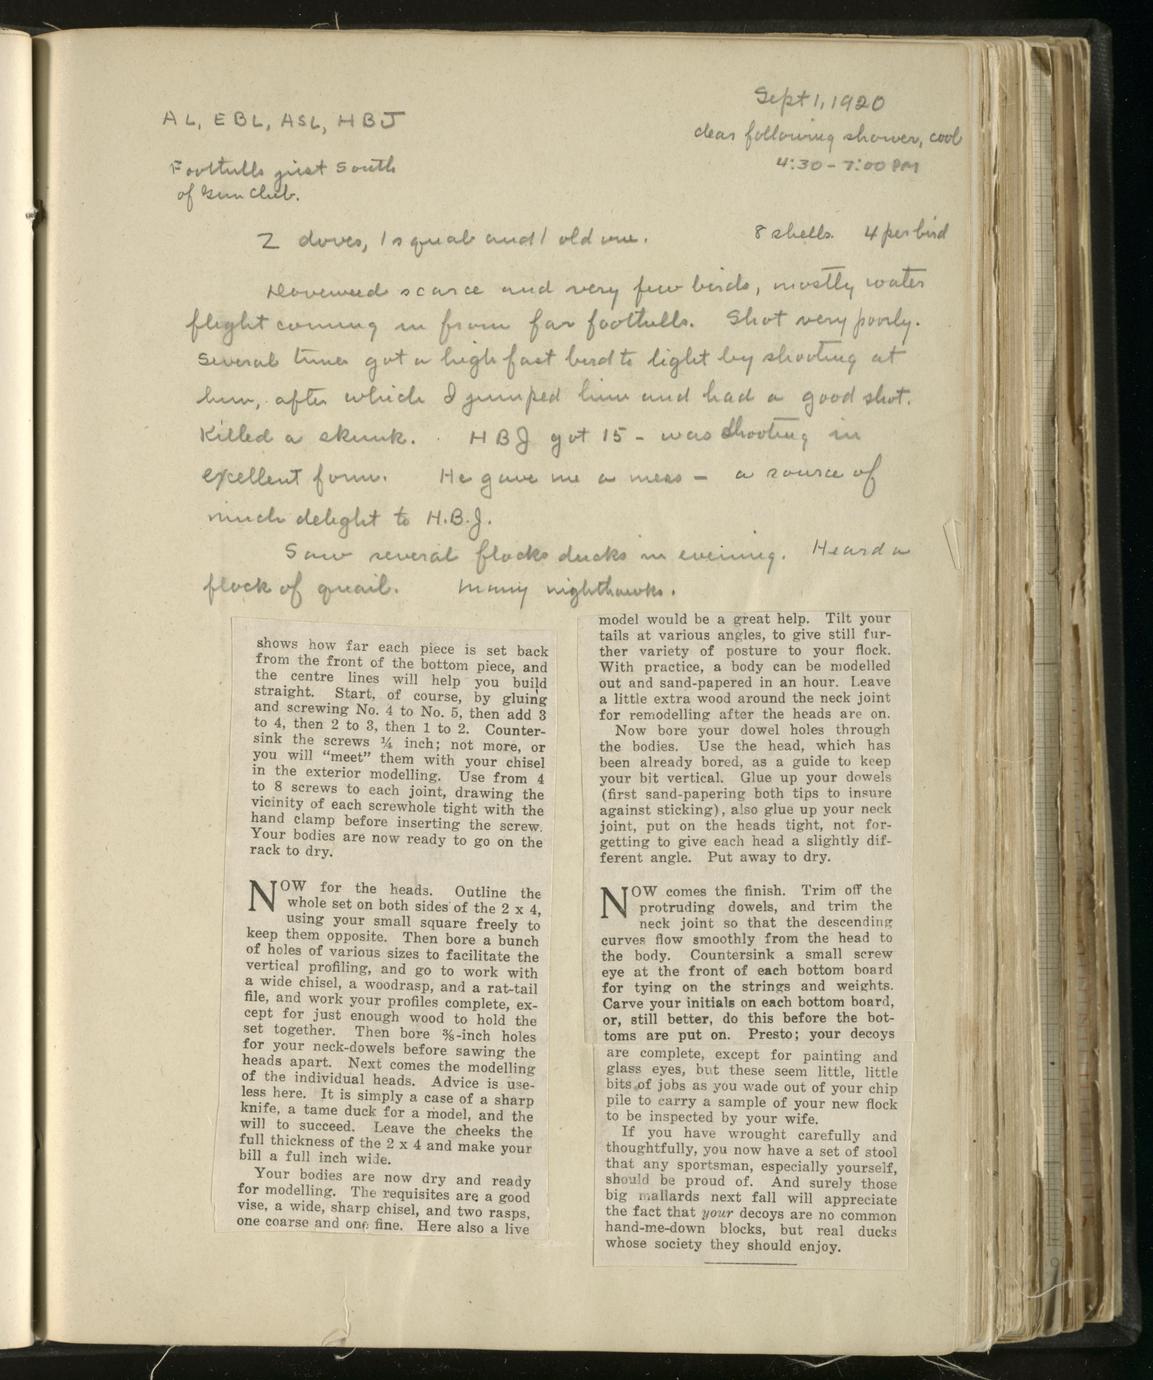 Sept 1, 1920
AL, EBL, ASL, HBJ
clear following shower, cool
4:30 - 7:00 PM
Foothills just South
of Gun Club.
2 doves, 1 squab and 1 old one.
8 shells. 4 per bird
Doveweed scarce and very few birds, mostly water
flight coming in from far foothills. Shot very poorly.
Several times got a high fast bird to light by shooting at
him, after which I jumped him and had a good shot.
Killed a skunk. HBJ got 15 - was shooting in
excellent form. He gave me a mess - a source of
much delight to H.B.J.
Saw several flocks ducks in evening. Heard a
flock of quail. Many nighthawks.
shows how far each piece is set back
from the front of the bottom piece, and
the centre lines will help you build
straight. Start, of course, by gluing
and screwing No. 4 to No. 5, then add 3
to 4, then 2 to 3, then 1 to 2. Counter-
sink the screws ¼ inch; not more, or
you will "meet" them with your chisel
in the exterior modelling. Use from 4
to 8 screws to each joint, drawing the
vicinity of each screwhole tight with the
hand clamp before inserting the screw.
Your bodies are now ready to go on the
rack to dry.
NOW for the heads. Outline the
whole set on both sides of the 2 x 4,
using your small square freely to
keep them opposite. Then bore a bunch
of holes of various sizes to facilitate the
vertical profiling, and go to work with
a wide chisel, a woodrasp, and a rat-tail
file, and work your profiles complete, ex-
cept for just enough wood to hold the
set together. Then bore ⅜-inch holes
for your neck-dowels before sawing the
heads apart. Next comes the modelling
of the individual heads. Advice is use-
less here. It is simply a case of a sharp
knife, a tame duck for a model, and the
will to succeed. Leave the cheeks the
full thickness of the 2 x 4 and make your
bill a full inch wide.
Your bodies are now dry and ready
for modelling. The requisites are a good
vise, a wide, sharp chisel, and two rasps,
one coarse and one fine. Here also a live
model would be a great help. Tilt your
tails at various angles, to give still fur-
ther variety of posture to your flock.
With practice, a body can be modelled
out and sand-papered in an hour. Leave
a little extra wood around the neck joint
for remodelling after the heads are on.
Now bore your dowel holes through
the bodies. Use the head, which has
been already bored, as a guide to keep
your bit vertical. Glue up your dowels
(first sand-papering both tips to insure
against sticking), also glue up your neck
joint, put on the heads tight, not for-
getting to give each head a slightly dif-
ferent angle. Put away to dry.
NOW comes the finish. Trim off the
protruding dowels, and trim the
neck joint so that the descending
curves flow smoothly from the head to
the body. Countersink a small screw
eye at the front of each bottom board
for tying on the strings and weights.
Carve your initials on each bottom board,
or, still better, do this before the bot-
toms are put on. Presto; your decoys
are complete, except for painting and
glass eyes, but these seem little, little
bits of jobs as you wade out of your chip
pile to carry a sample of your new flock
to be inspected by your wife.
If you have wrought carefully and
thoughtfully, you now have a set of stool
that any sportsman, especially yourself,
should be proud of. And surely those
big mallards next fall will appreciate
the fact that your decoys are no common
hand-me-down blocks, but real ducks
whose society they should enjoy.